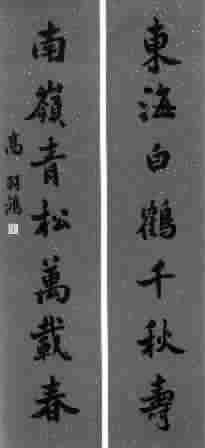 東海白鶴千秋壽
南嶺青松萬載春
高翔鴻